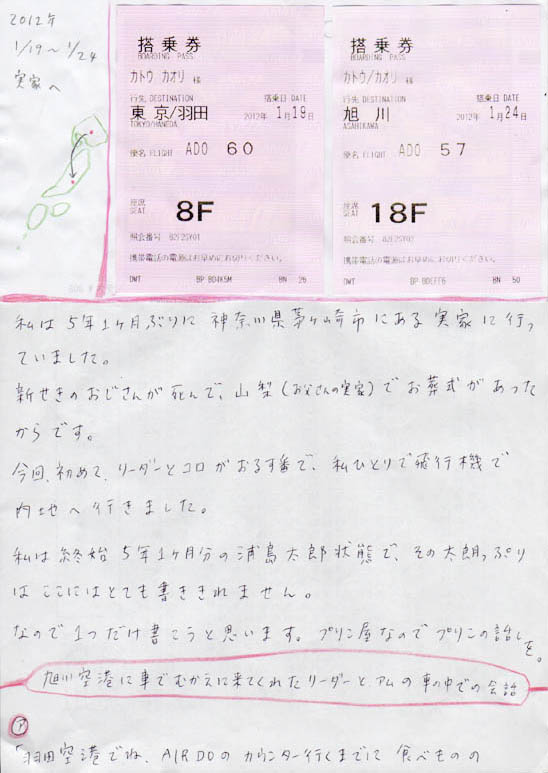 2012年
1/19～1/24
実家へ
搭乗券
BOARDING PASS
カトウ カオリ 様
行先 DESTINATION 搭乗日 DATE
東京/羽田 2012年 1月19日
TOKYO/HANEDA
便名 FLIGHT ADO 60
座席 SEAT 8F
照会番号 82F2SY01
携帯電話の電源はお早めにお切りください。
DWT BP-BD4K5M BN 26
搭乗券
BOARDING PASS
カトウ/カオリ 様
行先 DESTINATION 搭乗日 DATE
旭川 2012年 1月24日
ASAHIKAWA
便名 FLIGHT ADO 57
座席 SEAT 18F
照会番号 82F2SY01
携帯電話の電源はお早めにお切りください。
DWT BP-BDEFF6 BN 50
私は5年1ヶ月ぶりに神奈川県茅ヶ崎市にある実家に行っ
ていました。
新せきのおじさんが死んで、山梨(お父さんの実家)でお葬式があった
からです。
今回、初めて、リーダーとコロがおるす番で、私ひとりで飛行機で
内地へ行きました。
私は終始5年1ヶ月分の浦島太郎状態で、その太朗っぷり
はここにはとても書ききれません。
なので1つだけ書こうと思います。プリン屋なのでプリンの話しを。
旭川空港に車でむかえに来てくれたリーダーとアムの車の中での会話
ア
「羽田空港でね、AIRDOのカウンター行くまでに食べものの